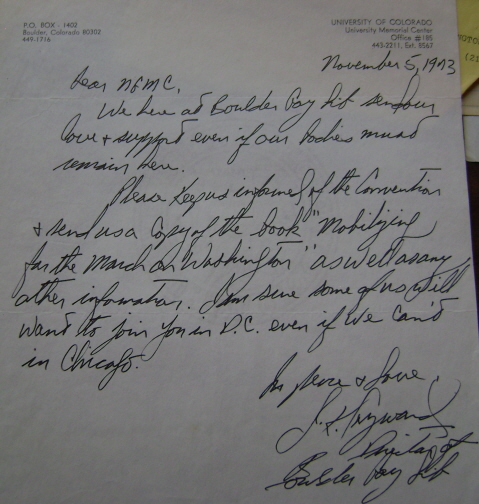 P.O. BOX - 1402
Boulder, Colorado 80302
449-1716
UNIVERSITY OF COLORADO
University Memorial Center
Office #185
443-2211, Ext. 8567
November 5, 1973
Dear NGMC,
We here at Boulder Gay Lib send our
love + support even if our bodies must
remain here.
Please keep us informed of the Convention
+ send us a copy of the book "Mobilizing
for the March on Washington" as well as any
other information. I am sure some of us will
want to join you in D.C. even if we can't
in Chicago.
In peace + love,
Boulder Gay Lib